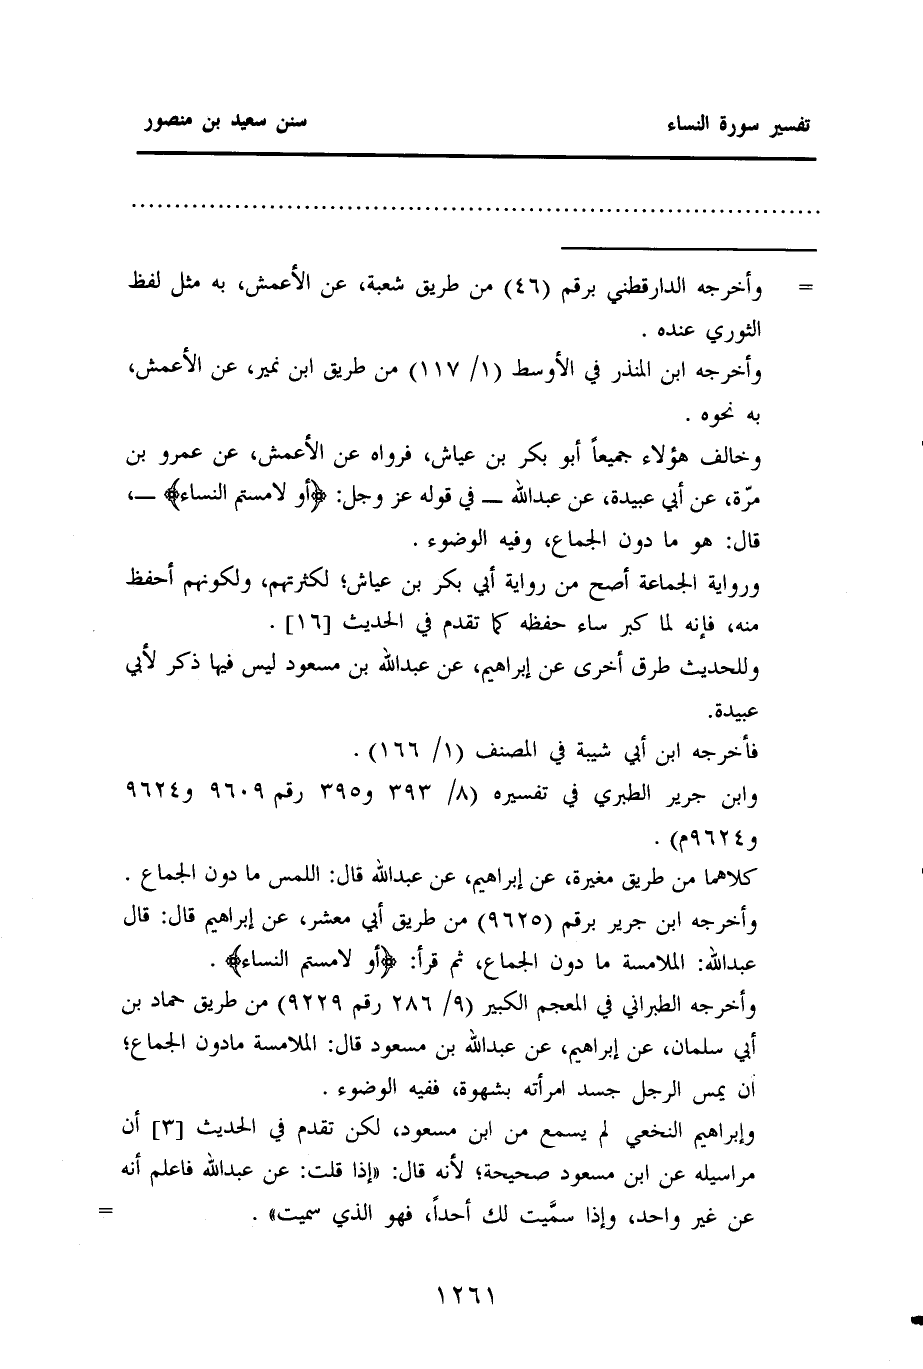 تفسير سورة النساء سنن سعيد بن منصور
................................................................................
= وأخرجه الدارقطني برقم (٤٦) من طريق شعبة، عن الأعمش، به مثل لفظ
الثوري عنده .
وأخرجه ابن المنذر في الأوسط (١/ ١١٧) من طريق ابن نمير، عن الأعمش،
به نحوه .
وخالف هؤلاء جميعاً أبو بكر بن عياش، فرواه عن الأعمش، عن عمرو بن
مرّة، عن أبي عبيدة، عن عبدالله ــ في قوله عز وجل: ﴿أو لامستم النساء﴾ ــ،
قال: هو ما دون الجماع، وفيه الوضوء .
ورواية الجماعة أصح من رواية أبي بكر بن عياش؛ لكثرتهم، ولكونهم أحفظ
منه، فإنه لما كبر ساء حفظه كما تقدم في الحديث [١٦] .
وللحديث طرق أخرى عن إبراهيم، عن عبدالله بن مسعود ليس فيها ذكر لأبي
عبيدة.
فأخرجه ابن أبي شيبة في المصنف (١/ ١٦٦) .
وابن جرير الطبري في تفسيره (٨/ ٣٩٣ و٣٩٥ رقم ٩٦٠٩ و٩٦٢٤
و٩٦٢٤م) .
كلاهما من طريق مغيرة، عن إبراهيم، عن عبدالله قال: اللمس ما دون الجماع .
وأخرجه ابن جرير برقم (٩٦٢٥) من طريق أبي معشر، عن إبراهيم قال: قال
عبدالله: الملامسة ما دون الجماع، ثم قرأ: ﴿أو لامستم النساء﴾ .
وأخرجه الطبراني في المعجم الكبير (٩/ ٢٨٦ رقم ٩٢٢٩) من طريق حماد بن
أبي سلمان، عن إبراهيم، عن عبدالله بن مسعود قال: الملامسة مادون الجماع؛
أن يمس الرجل جسد امرأته بشهوة، ففيه الوضوء .
وإبراهيم النخعي لم يسمع من ابن مسعود، لكن تقدم في الحديث [٣] أن
مراسيله عن ابن مسعود صحيحة؛ لأنه قال: «إذا قلت: عن عبدالله فاعلم أنه
عن غير واحد، وإذا سمَّيت لك أحداً، فهو الذي سميت» . =
١٢٦١